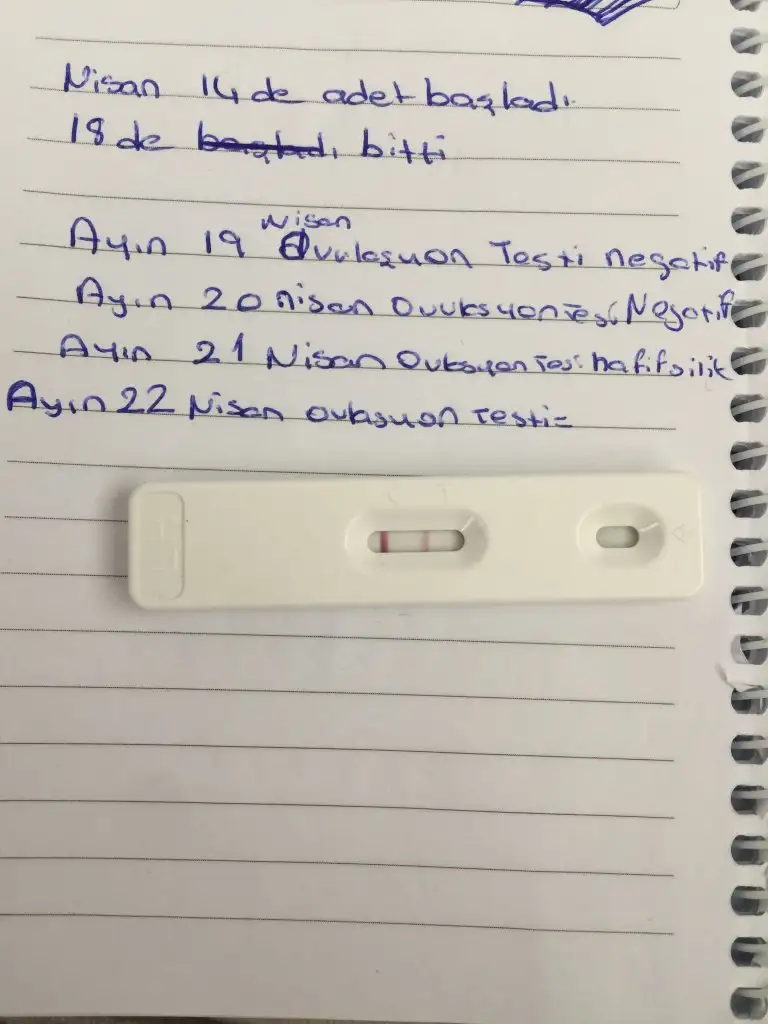 Nisan 14 de adet başladı.
18 de başladı bitti
Nisan
Ayın 19 Ovulasyon Testi negatif
Ayın 20 nisan Ovulasyon Test Negatif
Ayın 21 Nisan Ovulasyon Test hafif silik
Ayın 22 Nisan ovlasyon Testi=
C T
LH